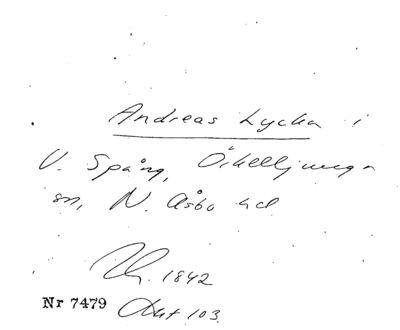 Andreas Lycka i
V. Spång, Örkelljunga
sn, N. Åsbo hd
1842
Nr 7479 Akt 103.